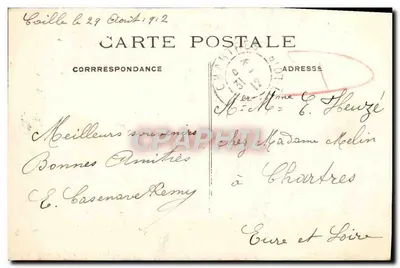 Caille le 29 Août 1912
CARTE POSTALE
CORRRESPONDANCE
ADRESSE
Meilleurs souvenirs
Bonnes Amitiés
E. Casenave Remy
Mr Mme E. Heuzé
chez Madame Melin
à
Chartres
Eure et Loire
CPARAMA